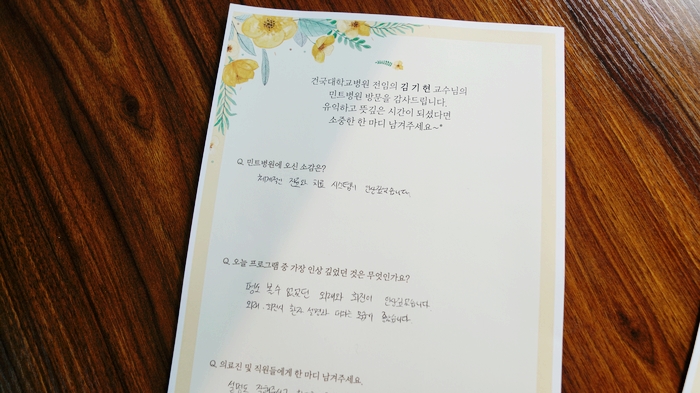 건국대학교병원 전임의 김기현 교수님의
민트병원 방문을 감사드립니다.
유익하고 뜻깊은 시간이 되셨다면
소중한 한 마디 남겨주세요~*
Q. 민트병원에 오신 소감은?
체계적인 진료와 치료 시스템이 인상깊었습니다.
Q. 오늘 프로그램 중 가장 인상 깊었던 것은 무엇인가요?
평소 볼수 없었던 외래와 회진이 인상깊었습니다
외래, 회진시 환자 설명과 대하는 모습이 좋았습니다.
Q. 의료진 및 직원들에게 한 마디 남겨주세요.
설명도